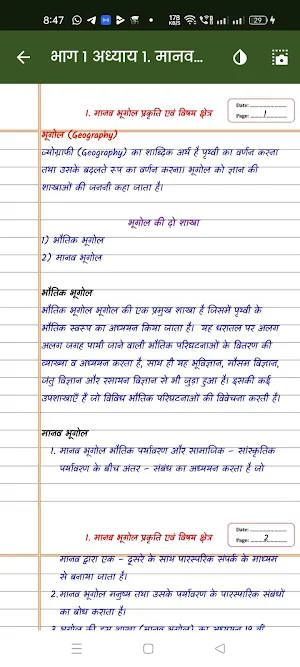 8:47
178 KB/S
29
भाग 1 अध्याय 1. मानव...
1. मानव भूगोल प्रकृति एवं विषय क्षेत्र
Date: ..................
Page: 1
भूगोल (Geography)
ज्योग्राफी (Geography) का शाब्दिक अर्थ है पृथ्वी का वर्णन करना
तथा उसके बदलते रूप का वर्णन करना। भूगोल को ज्ञान की
शाखाओं की जननी कहा जाता है।
भूगोल की दो शाखा
1) भौतिक भूगोल
2) मानव भूगोल
भौतिक भूगोल
भौतिक भूगोल भूगोल की एक प्रमुख शाखा है जिसमें पृथ्वी के
भौतिक स्वरूप का अध्ययन किया जाता हैं। यह धरातल पर अलग
अलग जगह पायी जाने वाली भौतिक परिघटनाओं के वितरण की
व्याख्या व अध्ययन करता है, साथ ही यह भूविज्ञान, मौसम विज्ञान,
जंतु विज्ञान और रसायन विज्ञान से भी जुड़ा हुआ है। इसकी कई
उपशाखाएँ हैं जो विविध भौतिक परिघटनाओं की विवेचना करती हैं।
मानव भूगोल
1. मानव भूगोल भौतिक पर्यावरण और सामाजिक – सांस्कृतिक
पर्यावरण के बीच अंतर – संबंध का अध्ययन करता है जो
1. मानव भूगोल प्रकृति एवं विषय क्षेत्र
Date: ..................
Page: 2
मानव द्वारा एक – दूसरे के साथ पारस्परिक संपर्क के माध्यम
से बनाया जाता है।
2. मानव भूगोल मनुष्य तथा उसके पर्यावरण के पारस्परिक संबंधों
का बोध कराता है।
3. भूगोल की इस शाखा (मानव भूगोल) का अध्ययन 19 वीं